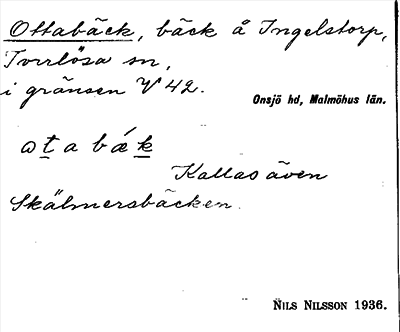 Ottabäck, bäck å Ingelstorp,
Torrlösa sn,
i gränsen V 42.
Onsjö hd, Malmöhus län.
ɷt a bǽk
Kallas även
Skälmersbäcken.
NILS NILSSON 1936.